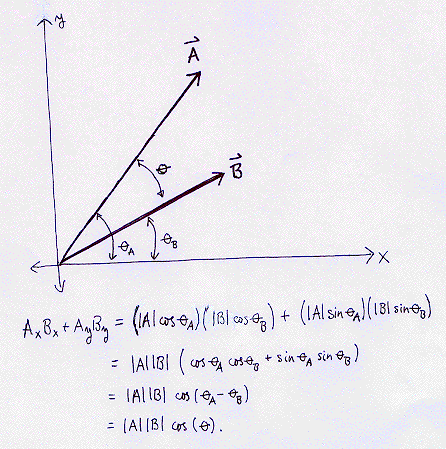 y
A⃗
θ
B⃗
θ_A
θ_B
x
A_xB_x + A_yB_y = (|A| cos θ_A)(|B| cos θ_B) + (|A| sin θ_A)(|B| sin θ_B)
= |A||B| (cos θ_A cos θ_B + sin θ_A sin θ_B)
= |A||B| cos (θ_A - θ_B)
= |A||B| cos (θ).